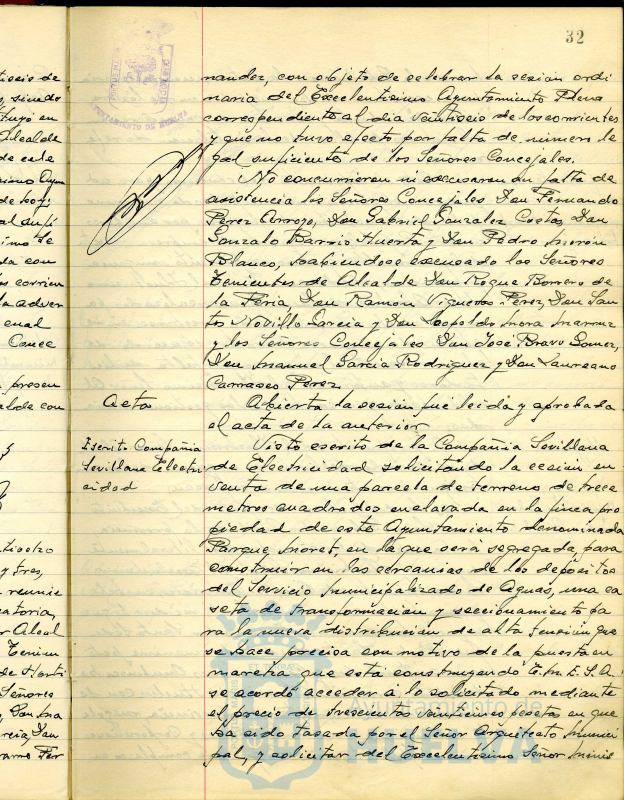 32
nandez, con objeto de celebrar la sesión ordi
naria del Excelentisimo Ayuntamiento Pleno
correspondiente al dia veintiseis de los corrientes
y que no tuvo efecto por falta de número le
gal suficiente de los Señores Concejales.
No concurrieron ni excusaron su falta de
asistencia los Señores Concejales Don Fernando
Perez Arroyo, Don Gabriel Gonzalez Costas, Don
Gonzalo Barrio Huerta y Don Pedro Morón
Blanco, habiendose excusado los Señores
Tenientes de Alcalde Don Roque Borrero de
la Feria, Don Ramón Vigueras Perez, Don San
tos Novillo Garcia y Don Leopoldo Mora
y los Señores Concejales Don José Bravo Gomez,
Don Manuel Garcia Rodriguez y Don Laureano
Carrasco Perez.
Acta
Abierta la sesión fué leida y aprobada
el acta de la anterior
Escrito Compañia
Sevillana Electri
cidad
Visto escrito de la Compañia Sevillana
de Electricidad solicitando la cesión en
venta de una parcela de terreno de trece
metros cuadrados enclavada en la finca pro
piedad de este Ayuntamiento denominada
Parque Moret, en la que será segregada, para
construir en las cercanias de los depósitos
del Servicio Municipalizado de Aguas, una ca
seta de transformacion y seccionamiento pa
ra la nueva distribucion de alta tension que
se hace precisa con motivo de la puesta en
marcha que está construyendo E.N.E.S.A.
se acordó acceder á lo solicitado mediante
el precio de trescientas veinticinco pesetas en que
ha sido tasada por el Señor Arquitecto Munici
pal, y solicitar del Excelentisimo Señor Minis
AYUNTAMIENTO DE HUELVA
Ayuntamiento de
HUELVA